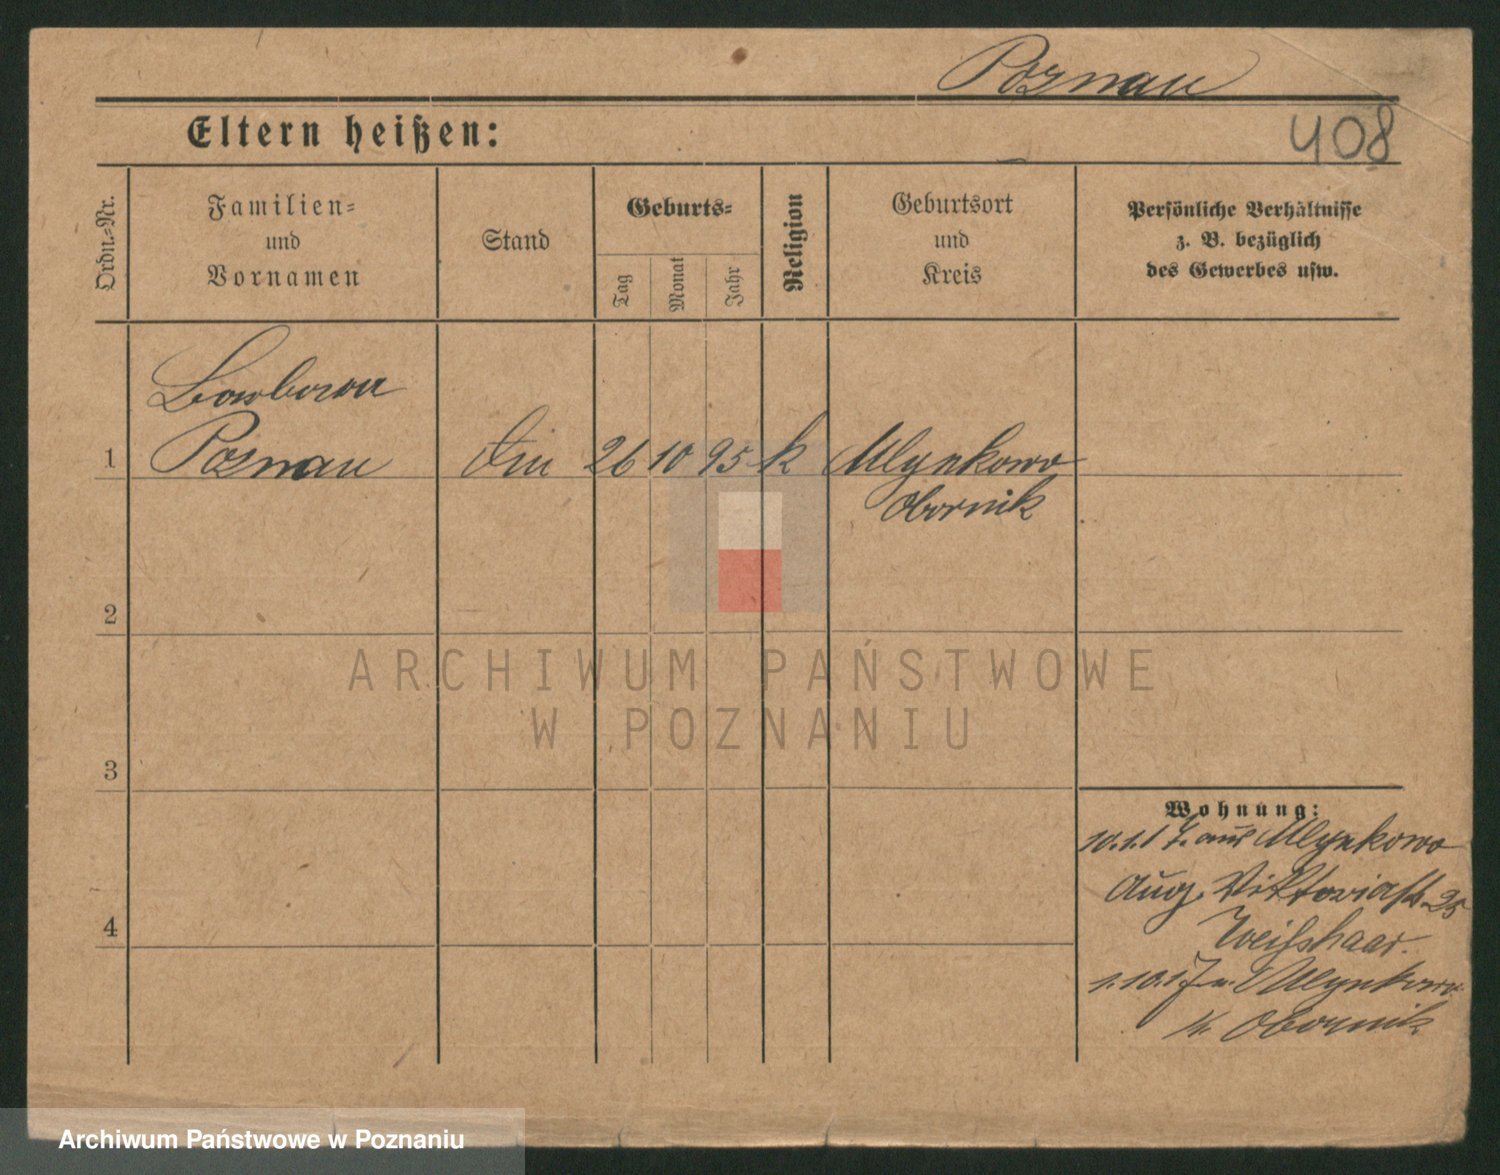 Poznan
Eltern heißen:
408
Ordn.-Nr.
Familien-
und
Vornamen
Stand
Geburts-
Tag
Monat
Jahr
Religion
Geburtsort
und
Kreis
Persönliche Verhältnisse
z. B. bezüglich
des Gewerbes usw.
1
Poznan
26 10 95 k Mlynkowo
Obornik
2
ARCHIWUM PAŃSTWOWE
W POZNANIU
3
Wohnung:
aus Mlynkowo
Aug. Viktoriastr 25
Weißhaar.
1.10.17 n. Mlynkowo
Obornik
4
Archiwum Państwowe w Poznaniu